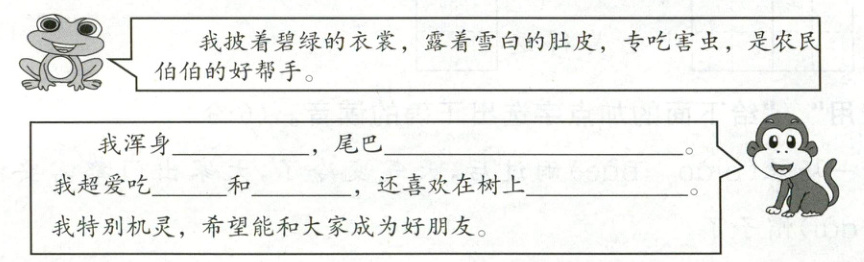 我披着碧绿的衣裳，露着雪白的肚皮，专吃害虫，是农民
伯伯的好帮手。
我浑身________，尾巴________________。
我超爱吃____和______，还喜欢在树上________。
我特别机灵，希望能和大家成为好朋友。